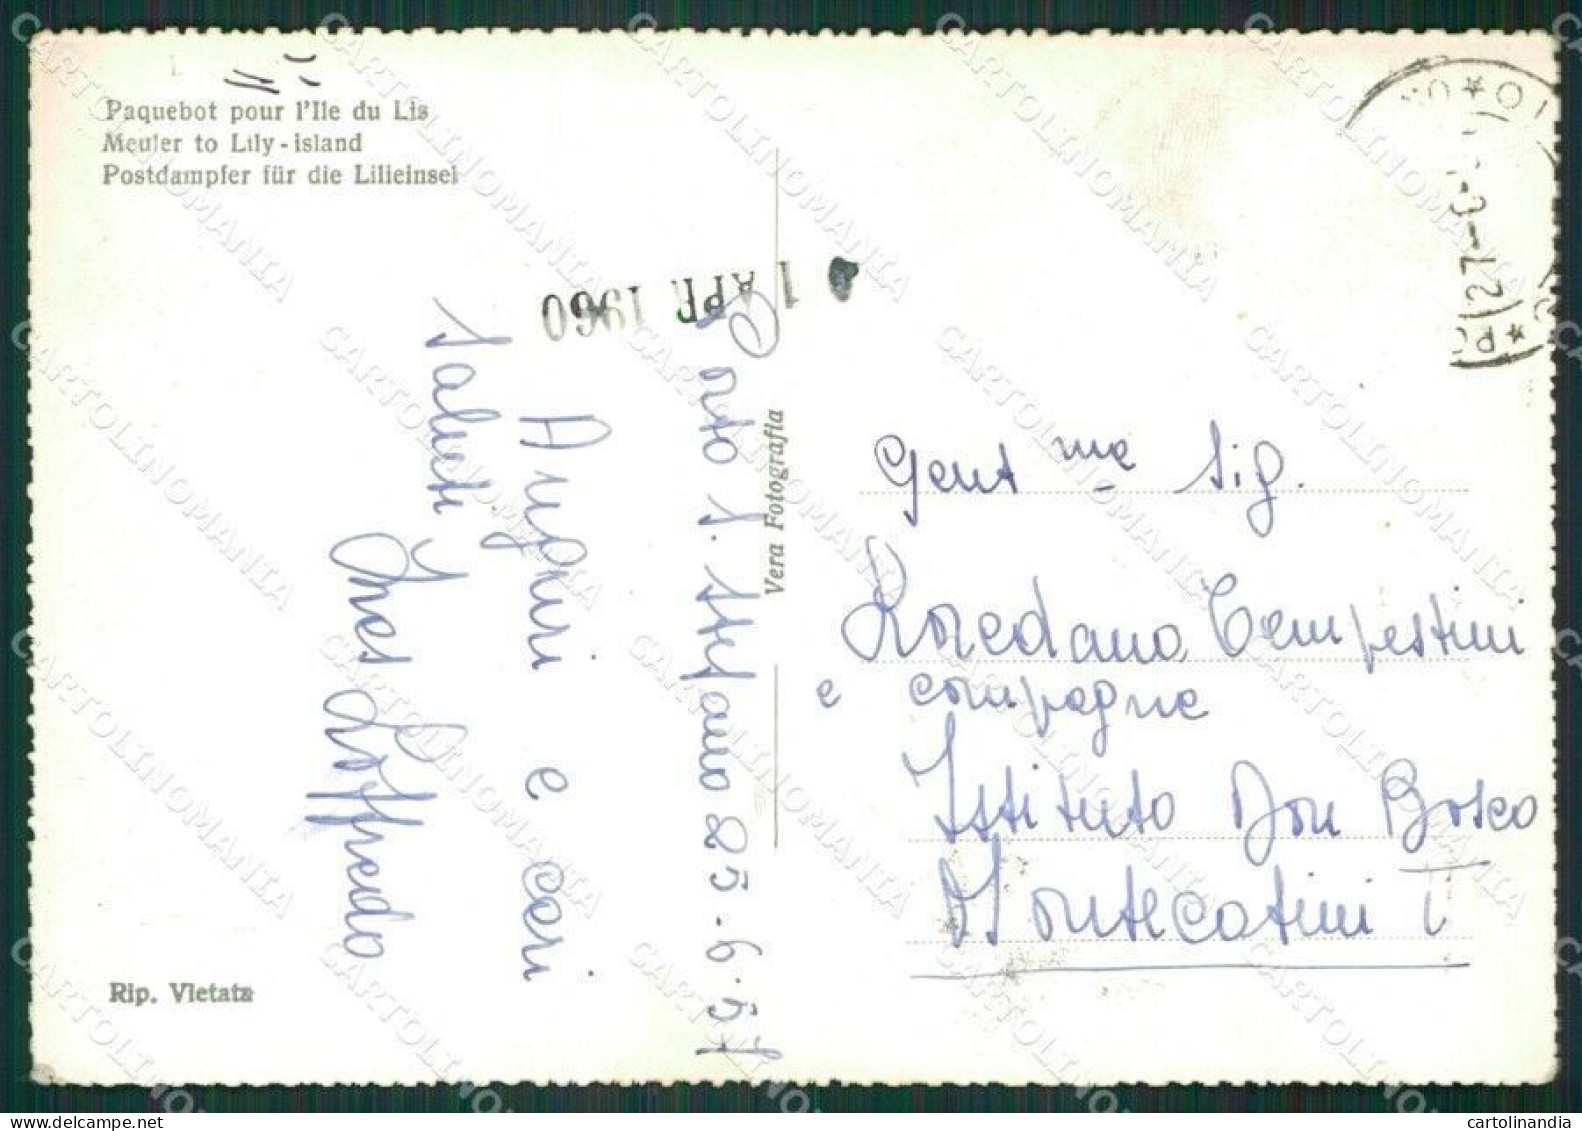 Paquebot pour l'Ile du Lis
Meuler to Lily-island
Postdampfer für die Lilieinsel
1 APR. 1960
Porto S. Stefano 25-6-57
Auguri e cari
saluti
Ines Loffredo
Vera Fotografia
Rip. Vietata
Gent ma Sig.
Loredana Tempestini
e compagne
Istituto Don Bosco
Montecatini T
CARTOLINOMANIA
cartolinandia